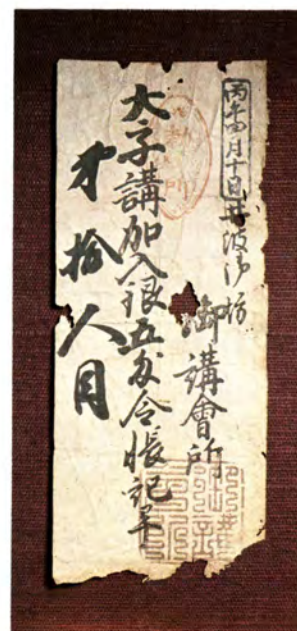 丙午四月十日井波御坊
御講會所
太子講加入銀五匁令帳記畢
第拾人目